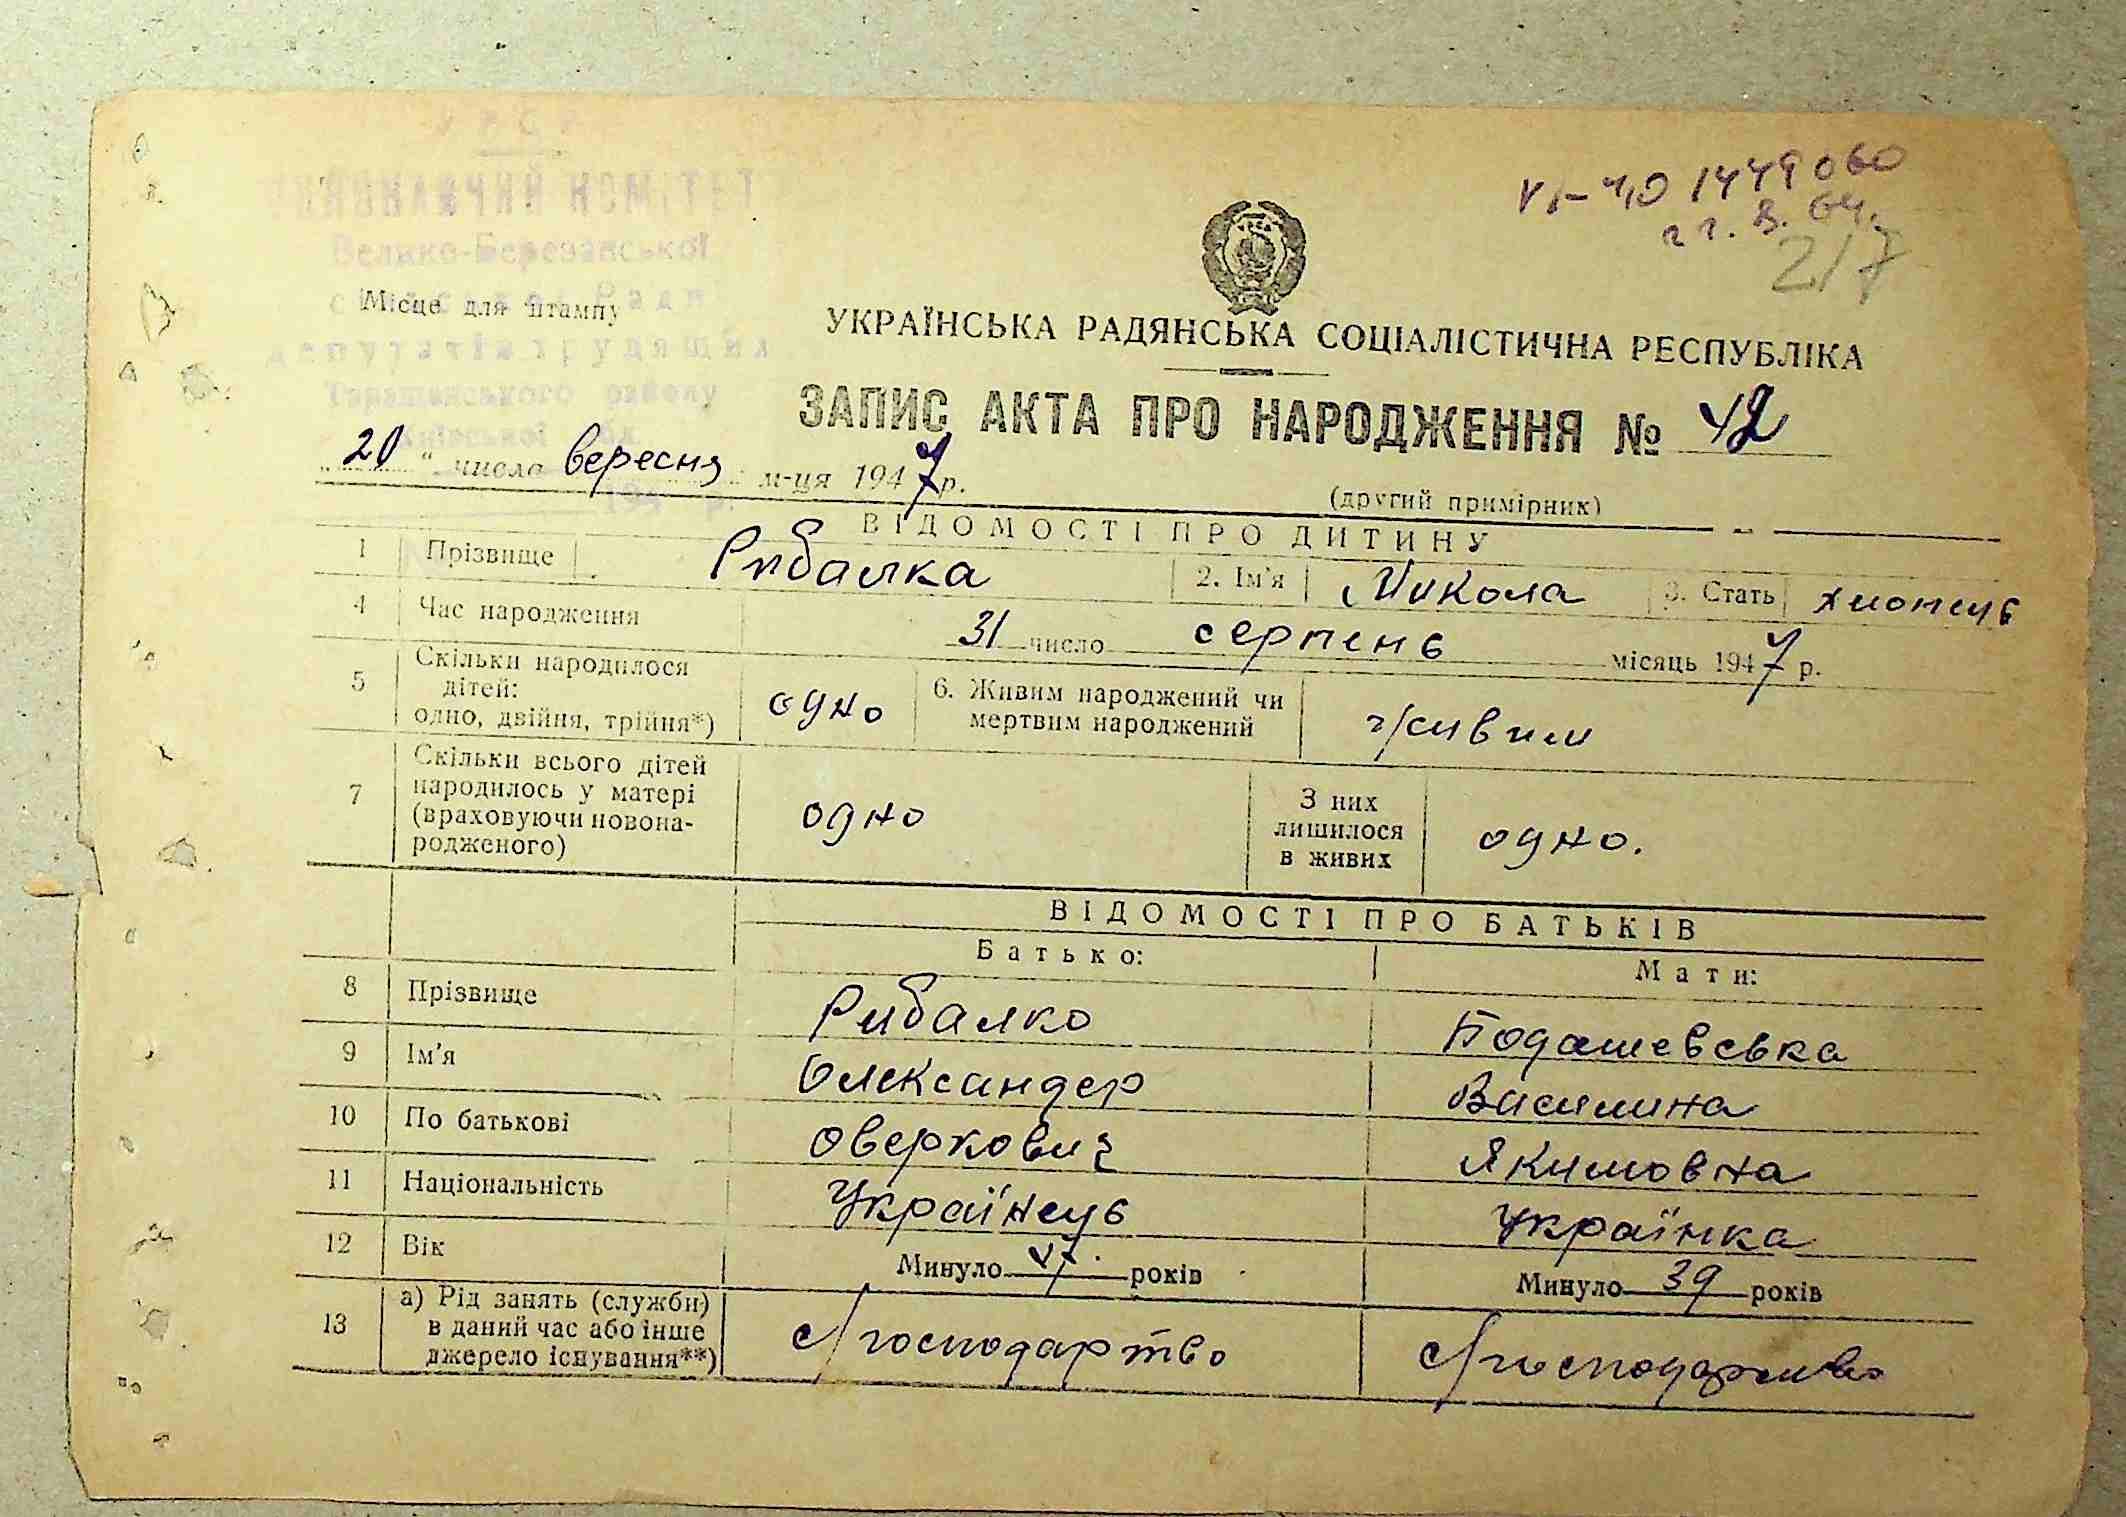 УРСР
ВИКОНАВЧИЙ КОМІТЕТ
Велико-Березанської
сільської Ради
депутатів трудящих
Таращанського району
Київської обл.
194 р.
Місце для штампу
1449060
2/7
УРСР
УКРАЇНСЬКА РАДЯНСЬКА СОЦІАЛІСТИЧНА РЕСПУБЛІКА
ЗАПИС АКТА ПРО НАРОДЖЕННЯ № 42
20 " числа вересня м-ця 1947 р.
(другий примірник)
ВІДОМОСТІ ПРО ДИТИНУ
1 Прізвище Рибалка 2. Ім'я Микола 3. Стать хлопець
4 Час народження 31 число серпень місяць 1947 р.
5 Скільки народилося дітей: одно, двійня, трійня*) одно 6. Живим народжений чи мертвим народжений живим
7 Скільки всього дітей народилось у матері (враховуючи новонародженого) одно З них лишилося в живих одно.
ВІДОМОСТІ ПРО БАТЬКІВ
Батько: Мати:
8 Прізвище Рибалко Бодашевська
9 Ім'я Олександер Василина
10 По батькові Оверкович Якимовна
11 Національність Українець Українка
12 Вік Минуло 47 років Минуло 39 років
13 а) Рід занять (служби) в даний час або інше джерело існування**) с/господартво с/господарство